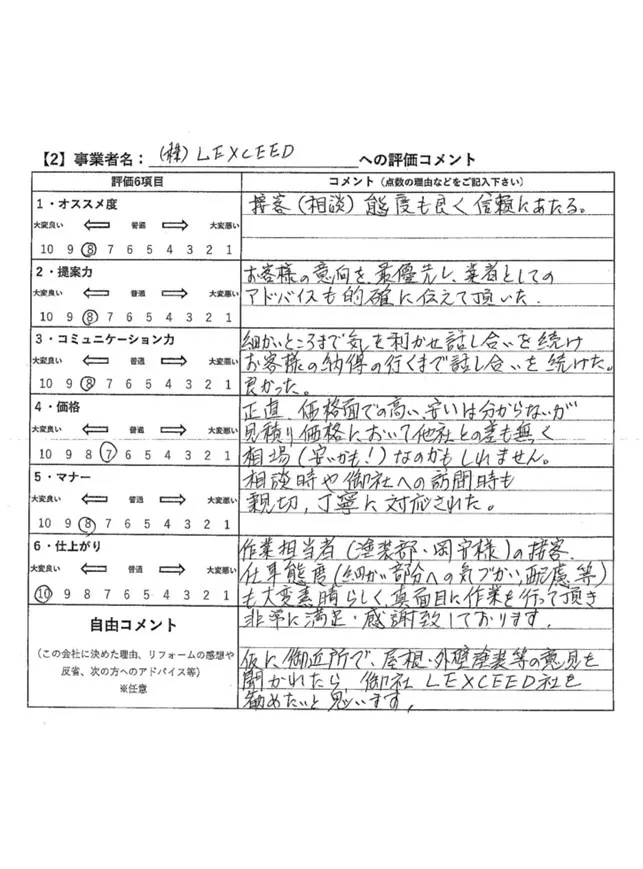 【2】事業者名：(株)LEXCEED への評価コメント
評価6項目 コメント（点数の理由などをご記入下さい）
1・オススメ度
大変良い 普通 大変悪い
10 9 8 7 6 5 4 3 2 1
接客(相談)態度も良く信頼にあたる。
2・提案力
大変良い 普通 大変悪い
10 9 8 7 6 5 4 3 2 1
お客様の意向を最優先し、業者としての
アドバイスも的確に伝えて頂いた.
3・コミュニケーション力
大変良い 普通 大変悪い
10 9 8 7 6 5 4 3 2 1
細かいところまで気を利かせ話し合いを続け
お客様の納得の行くまで話し合いを続けた。
良かった。
4・価格
大変良い 普通 大変悪い
10 9 8 7 6 5 4 3 2 1
正直、価格面での高い、安いは分からないが
見積り価格において他社との差も無く
相場(安いかも!)なのかもしれません。
5・マナー
大変良い 普通 大変悪い
10 9 8 7 6 5 4 3 2 1
相談時や御社への訪問時も
親切、丁寧に対応された。
6・仕上がり
大変良い 普通 大変悪い
10 9 8 7 6 5 4 3 2 1
作業担当者(塗装部・岡守様)の接客.
仕事態度(細かい部分への気づかい配慮等)
も大変素晴らしく、真面目に作業を行って頂き
非常に満足・感謝致しております.
自由コメント
（この会社に決めた理由、リフォームの感想や
反省、次の方へのアドバイス等）
※任意
仮に御近所で、屋根・外壁塗装等の意見を
聞かれたら 御社 LEXCEED社を
勧めたいと思います,